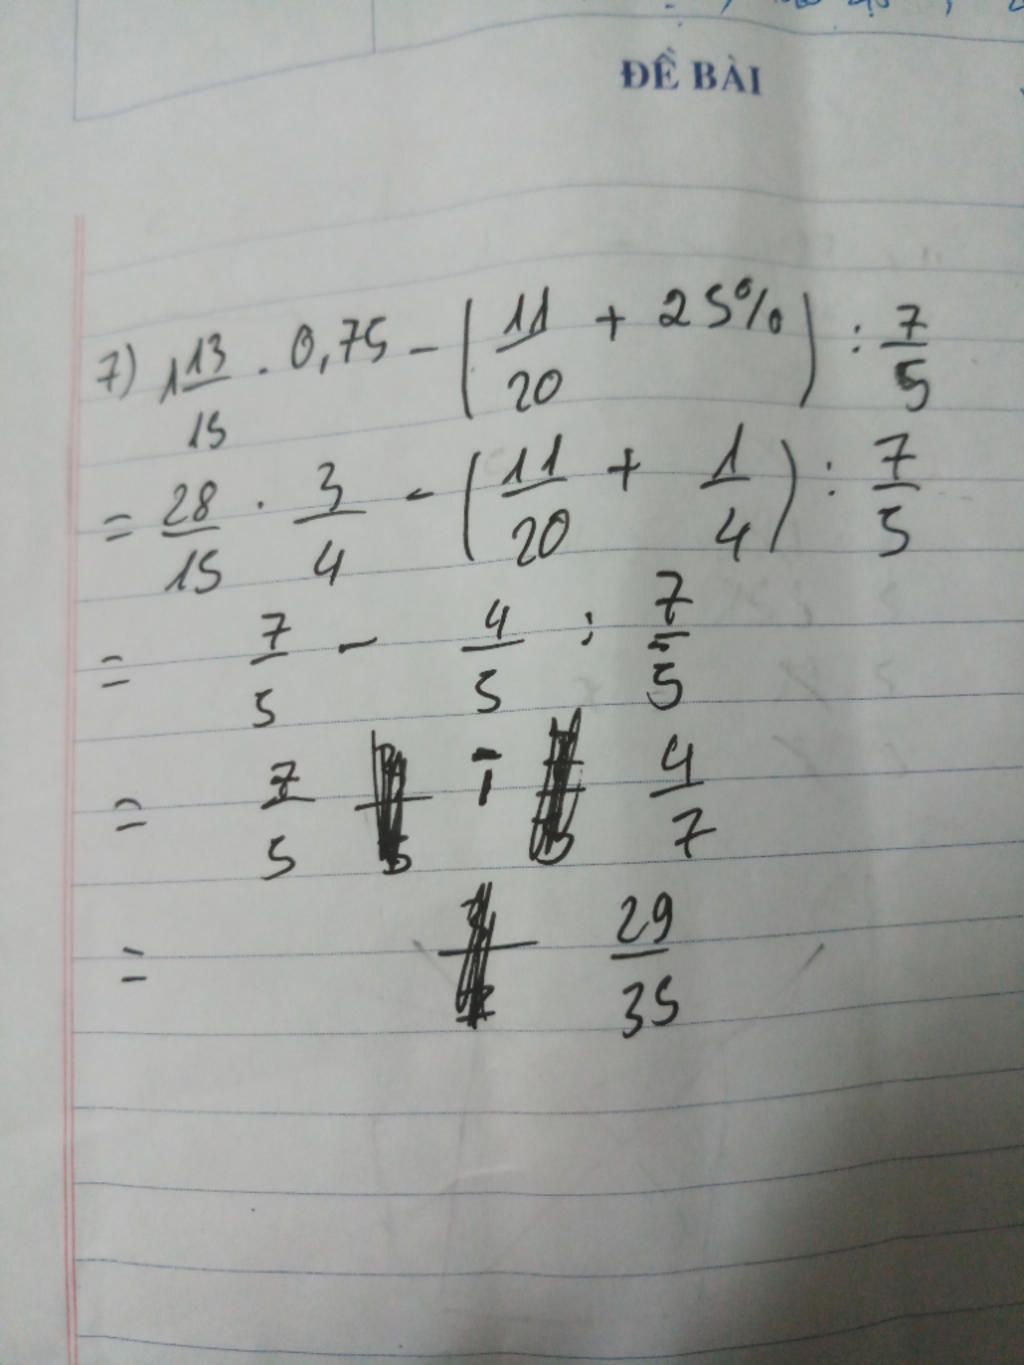 ĐỀ BÀI
7) 1 13/15 . 0,75 - (11/20 + 25%) : 7/5
= 28/15 . 3/4 - (11/20 + 1/4) : 7/5
= 7/5 - 4/5 : 7/5
= 7/5 - 4/7
= 29/35